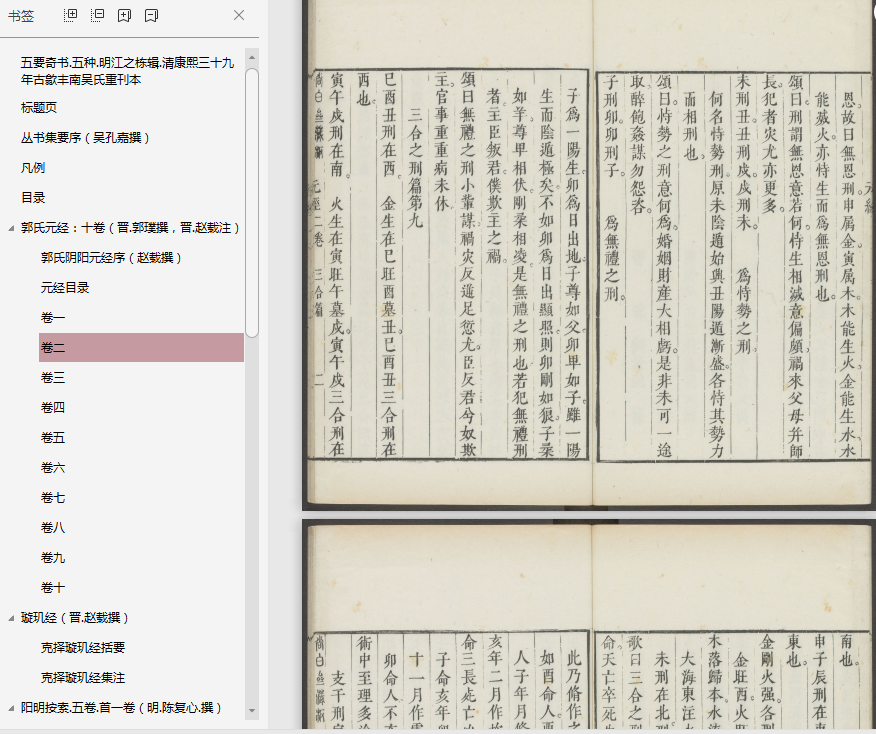 书签
五要奇书.五种.明江之栋辑.清康熙三十九
年古歙丰南吴氏重刊本
标题页
丛书集要序（吴孔嘉撰）
凡例
目录
郭氏元经：十卷（晋.郭璞撰，晋.赵载注）
郭氏阴阳元经序（赵载撰）
元经目录
卷一
卷二
卷三
卷四
卷五
卷六
卷七
卷八
卷九
卷十
璇玑经（晋.赵载撰）
克择璇玑经括要
克择璇玑经集注
阳明按索.五卷.首一卷（明.陈复心.撰）
恩故曰無恩刑申属金寅属木木能生火金能生水水
能滅火亦恃生而爲無恩刑也。
頌曰刑謂無恩意若何恃生相滅意偏頗禍來父母并師
長犯者灾尤亦更多。
未刑丑丑刑戌戌刑未。 爲恃勢之刑
何名恃勢刑原未陰遁始興丑陽遁漸盛各恃其勢力
而相刑也
頌曰恃勢之刑意何爲婚姻財産大相虧是非未可一途
取醉飽姦謀勿怨咨。
子刑卯卯刑子。 爲無禮之刑。
子爲一陽生。卯爲日出地。子尊如父。卯卑如子雖一陽
生而陰遁極矣不如卯爲日出顯照則卯剛如狼子柔
如羊尊卑相伏剛柔相凌是無禮之刑也若犯無禮刑
者主臣叛君僕欺主之禍
頌曰無禮之刑小輩謀禍灾反逆足愆尤。臣反君兮奴欺
主。官事重重病未休
三合之刑篇第九
巳酉丑刑在西。 金生在巳旺酉墓丑。巳酉丑三合刑在
西也。
寅午戌刑在南。 火生在寅旺午墓戌。寅午戌三合刑在
元經二卷 三合篇 二
南也。
申子辰刑在
東也。
金剛火强各刑
金旺酉火旺
木落歸本水流
大海東注
未刑在北
歌曰三合之刑
命夭亡卒死
此乃脩作之
如酉命人
人子年月
亥年二月作
命三長
子命亥年
十一月作
卯命人不
術中至理多
支干刑